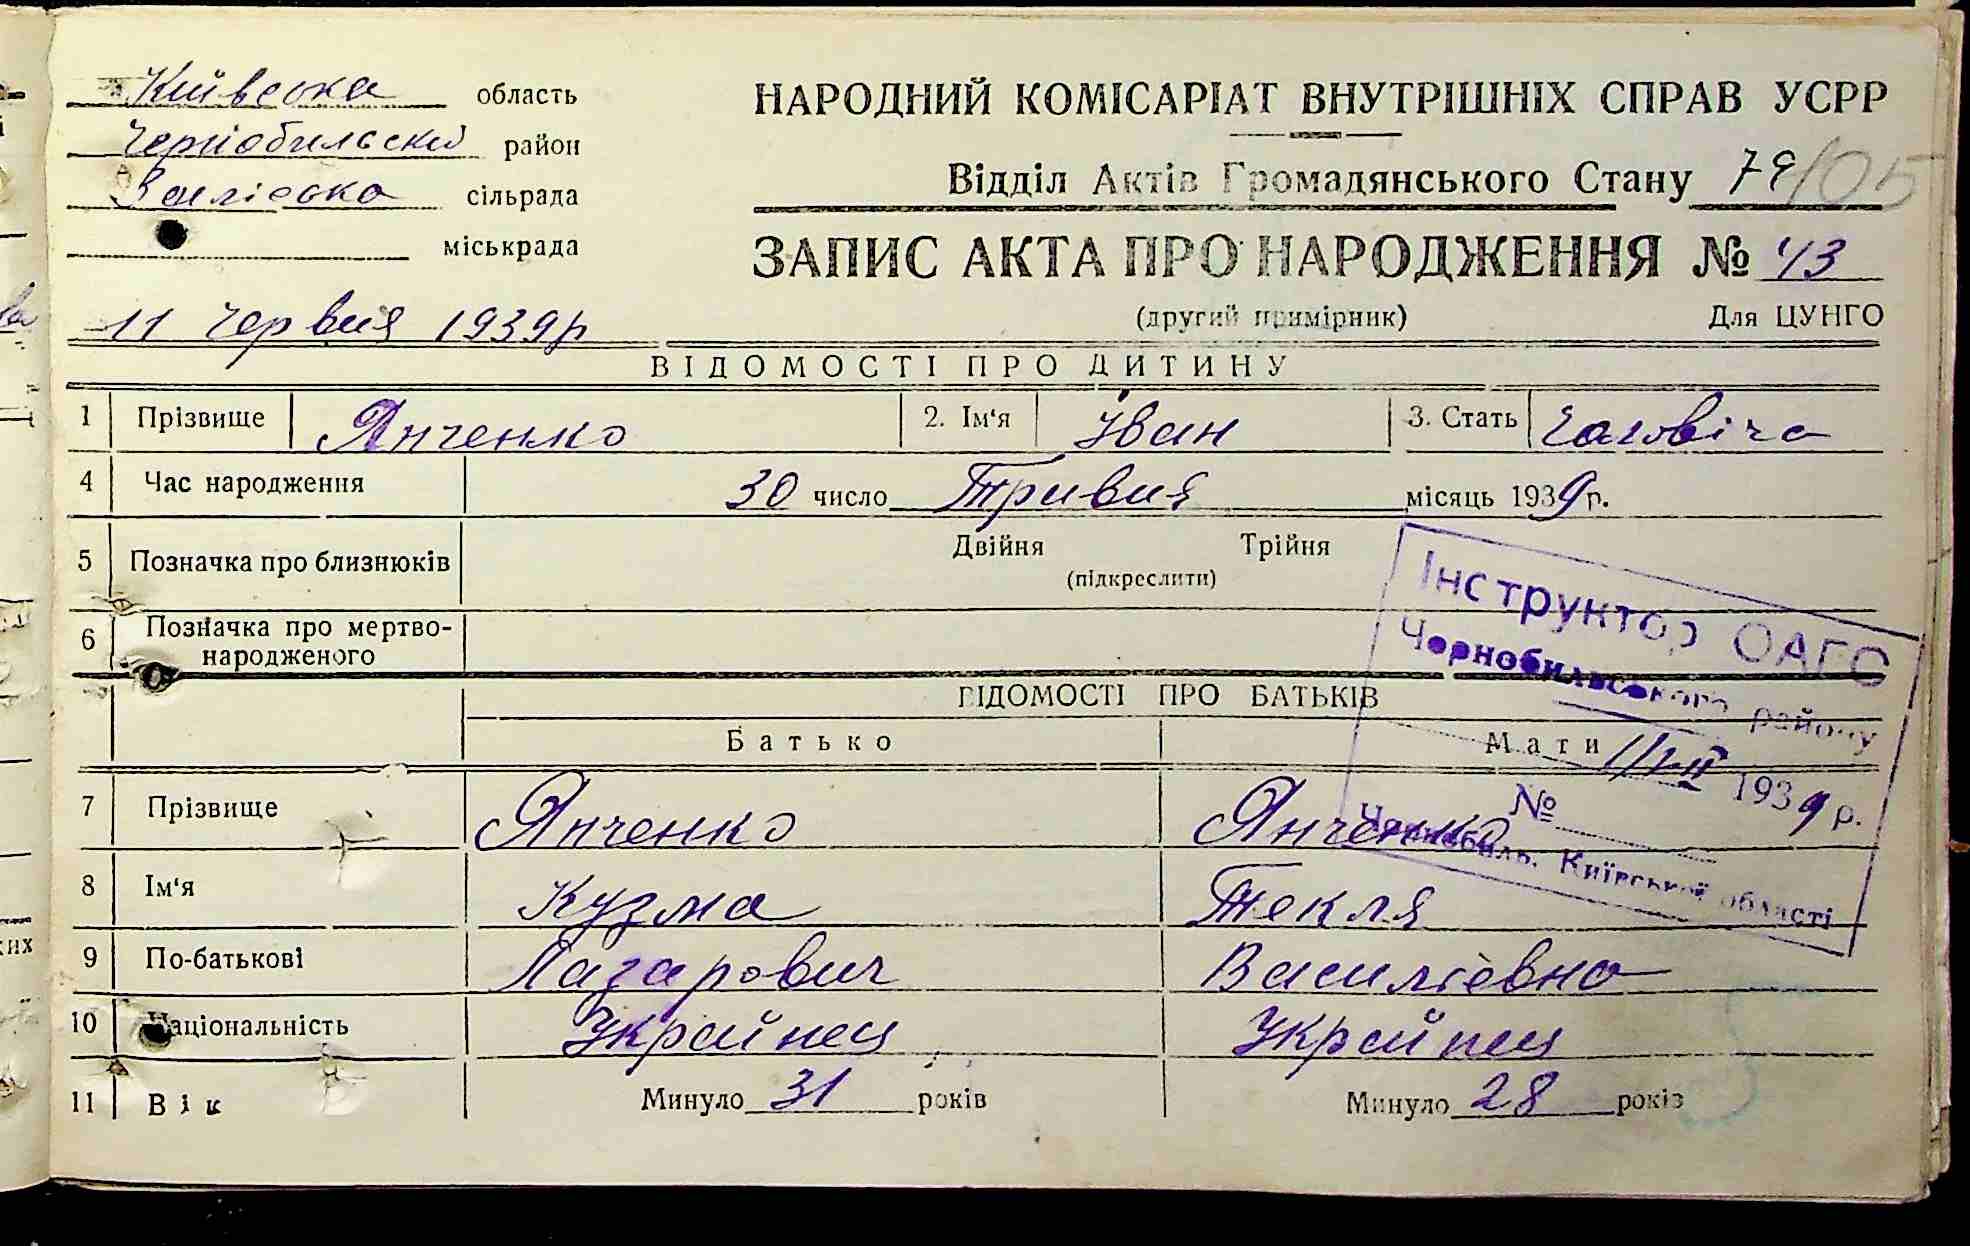 Київська область
Чернобильский район
Залісська сільрада
міськрада
НАРОДНИЙ КОМІСАРІАТ ВНУТРІШНІХ СПРАВ УСРР
Відділ Актів Громадянського Стану 79/105
ЗАПИС АКТА ПРО НАРОДЖЕННЯ № 43
11 червня 1939р
(другий примірник) Для ЦУНГО
ВІДОМОСТІ ПРО ДИТИНУ
1 Прізвище Янченко 2. Ім'я Іван 3. Стать чоловіча
4 Час народження 30 число Травня місяць 1939 р.
5 Позначка про близнюків Двійня Трійня
(підкреслити)
6 Позначка про мертво-
народженого
Інструктор ОАГС
Чорнобильського району
1939 р.
№
Чорнобиль, Київської області
ВІДОМОСТІ ПРО БАТЬКІВ
Батько Мати
7 Прізвище Янченко Янченко
8 Ім'я Кузма Текля
9 По-батькові Лазарович Василієвна
10 Національність Украйнец Украйнец
11 Вік Минуло 31 років Минуло 28 років